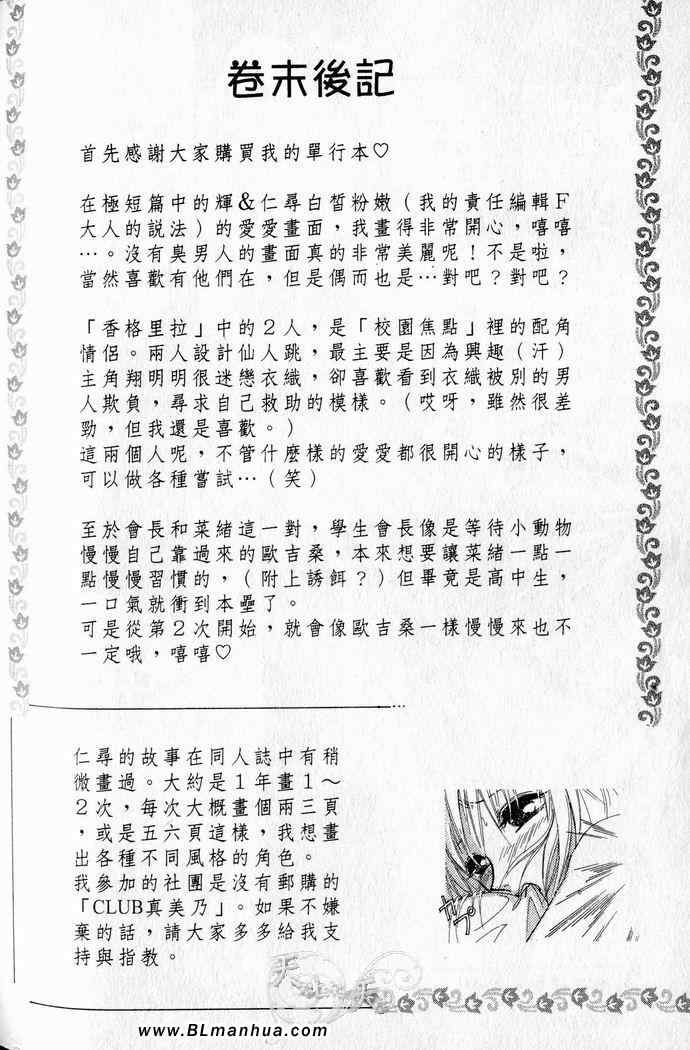 卷末後記
首先感謝大家購買我的單行本♡
在極短篇中的輝&仁尋白皙粉嫩（我的責任編輯F
大人的說法）的愛愛畫面，我畫得非常開心，嘻嘻
…。沒有臭男人的畫面真的非常美麗呢！不是啦，
當然喜歡有他們在，但是偶而也是…對吧？對吧？
「香格里拉」中的２人，是「校園焦點」裡的配角
情侶。兩人設計仙人跳，最主要是因為興趣（汗）
主角翔明明很迷戀衣織，卻喜歡看到衣織被別的男
人欺負，尋求自己救助的模樣。（哎呀，雖然很差
勁，但我還是喜歡。）
這兩個人呢，不管什麼樣的愛愛都很開心的樣子，
可以做各種嘗試…（笑）
至於會長和菜緒這一對，學生會長像是等待小動物
慢慢自己靠過來的歐吉桑，本來想要讓菜緒一點一
點慢慢習慣的，（附上誘餌？）但畢竟是高中生，
一口氣就衝到本壘了。
可是從第２次開始，就會像歐吉桑一樣慢慢來也不
一定哦，嘻嘻♡
仁尋的故事在同人誌中有稍
微畫過。大約是１年畫１～
２次，每次大概畫個兩三頁
，或是五六頁這樣，我想畫
出各種不同風格的角色。
我參加的社團是沒有郵購的
「CLUB真美乃」。如果不嫌
棄的話，請大家多多給我支
持與指教。
カプ
www.BLmanhua.com